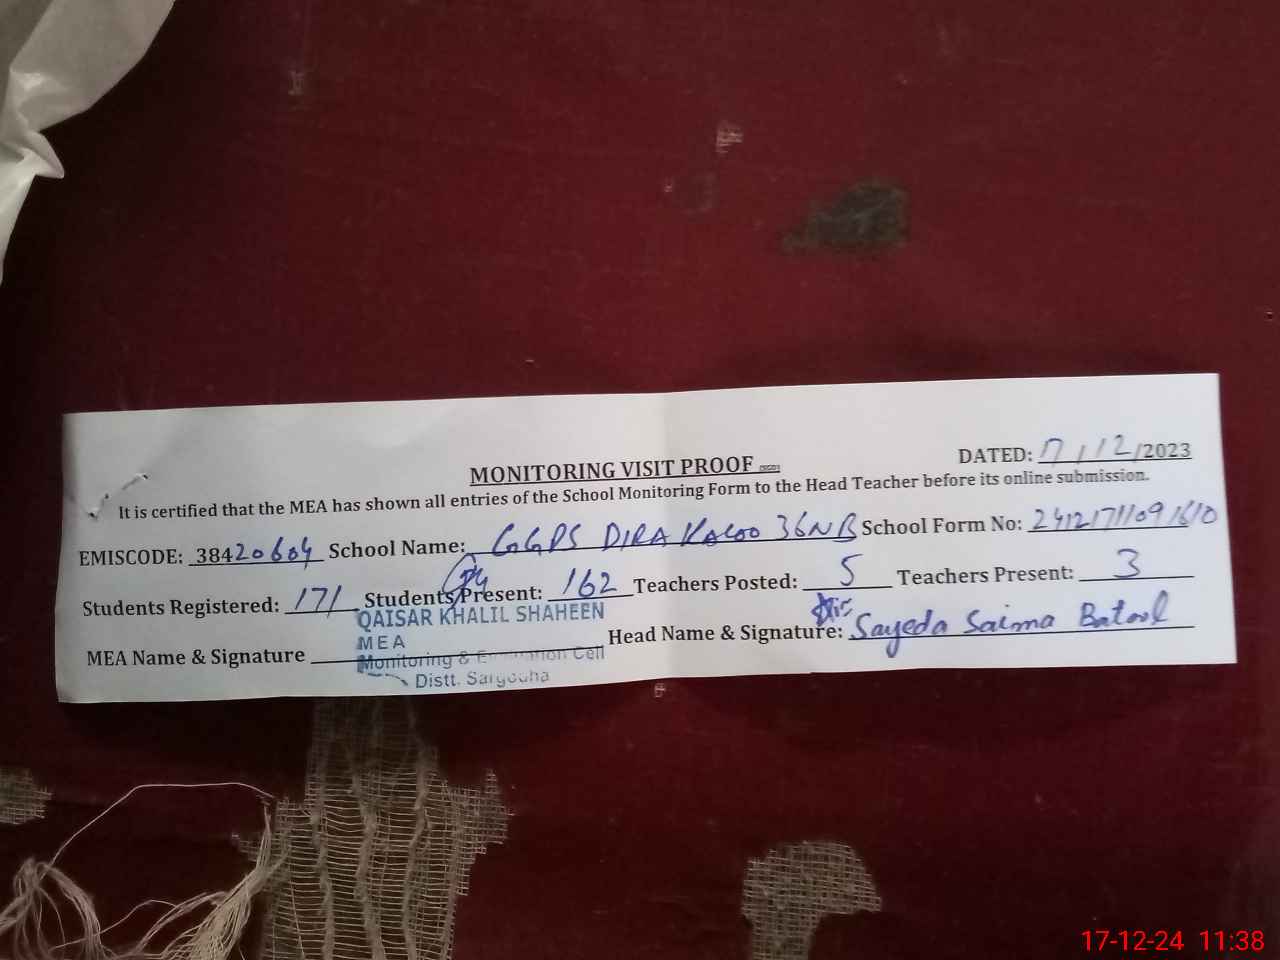 MONITORING VISIT PROOF (SGD) DATED: 17/12/2023
It is certified that the MEA has shown all entries of the School Monitoring Form to the Head Teacher before its online submission.
EMISCODE: 38420604 School Name: GGPS DIRA KALOO 36NB School Form No: 24121711091610
Students Registered: 171 Students Present: 162 Teachers Posted: 5 Teachers Present: 3
MEA Name & Signature Head Name & Signature: Sayeda Saima Batool
QAISAR KHALIL SHAHEEN
MEA
Monitoring & Evaluation Cell
Distt. Sargodha
17-12-24 11:38